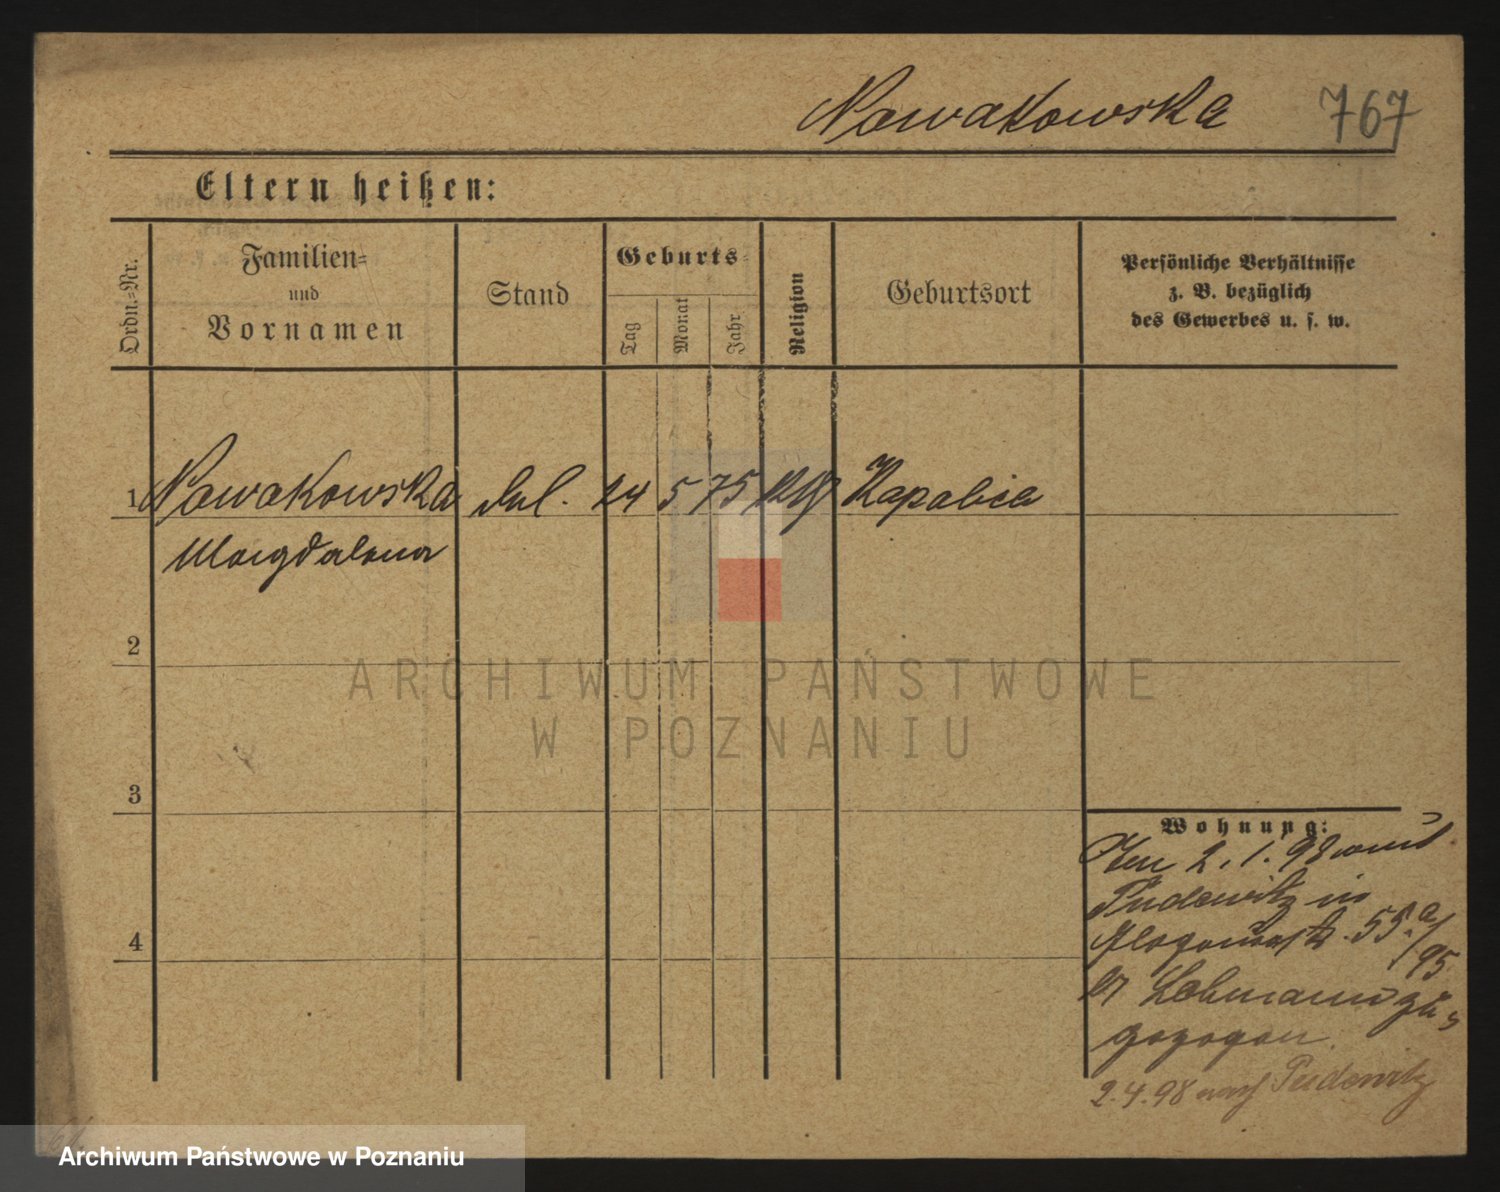 Nowakowska 767
Eltern heißen:
Ordn.-Nr.
Familien-
und
Vornamen
Stand
Geburts-
Tag
Monat
Jahr
Religion
Geburtsort
Persönliche Verhältnisse
z. B. bezüglich
des Gewerbes u. s. w.
1 Nowakowska 24 5 75 Kapalica
Magdalena
2
ARCHIWUM PAŃSTWOWE
W POZNANIU
3
Wohnung:
2. 1. 98
Pudewitz in
55 a/
95
Lehmann zu-
gezogen.
4
2.4.98 nach Pudewitz
Archiwum Państwowe w Poznaniu